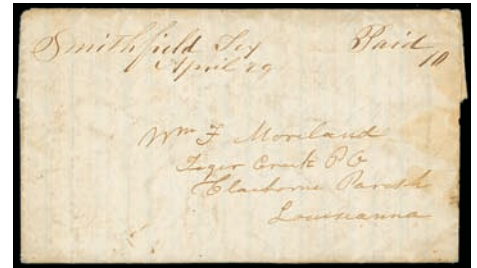 Smithfield Tex
Paid
April 29
10
Wm F Moreland
Tiger Creek PO
Claiborne Parish
Louisianna